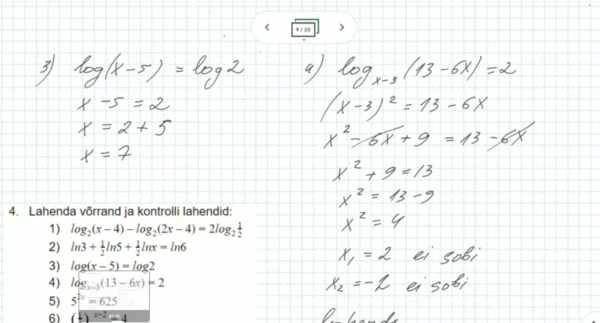 9 / 20
3) log(x-5) = log2
x - 5 = 2
x = 2 + 5
x = 7
a) log_{x-3} (13-6x) = 2
(x-3)² = 13 - 6x
x² - 6x + 9 = 13 - 6x
x² + 9 = 13
x² = 13 - 9
x² = 4
x₁ = 2 ei sobi
x₂ = -2 ei sobi
4. Lahenda võrrand ja kontrolli lahendid:
1) log₂(x − 4) − log₂(2x − 4) = 2log₂ 1/2
2) ln3 + 1/2 ln5 + 1/2 lnx = ln6
3) log(x − 5) = log2
4) log_{x−3}(13 − 6x) = 2
5) 5^{2x} = 625
6)